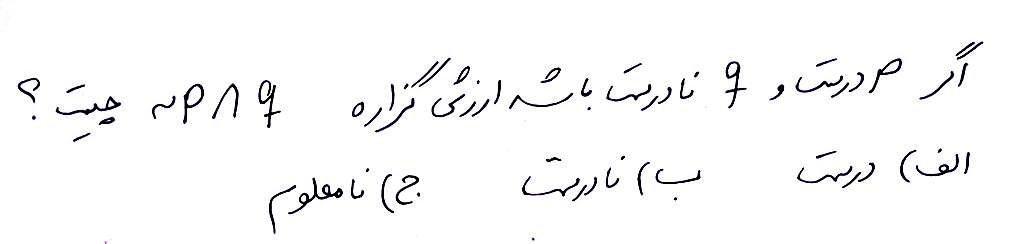 اگر p درست و q نادرست باشد ارزش گزاره ~p∧q چیست؟
الف) درست ب) نادرست ج) نامعلوم